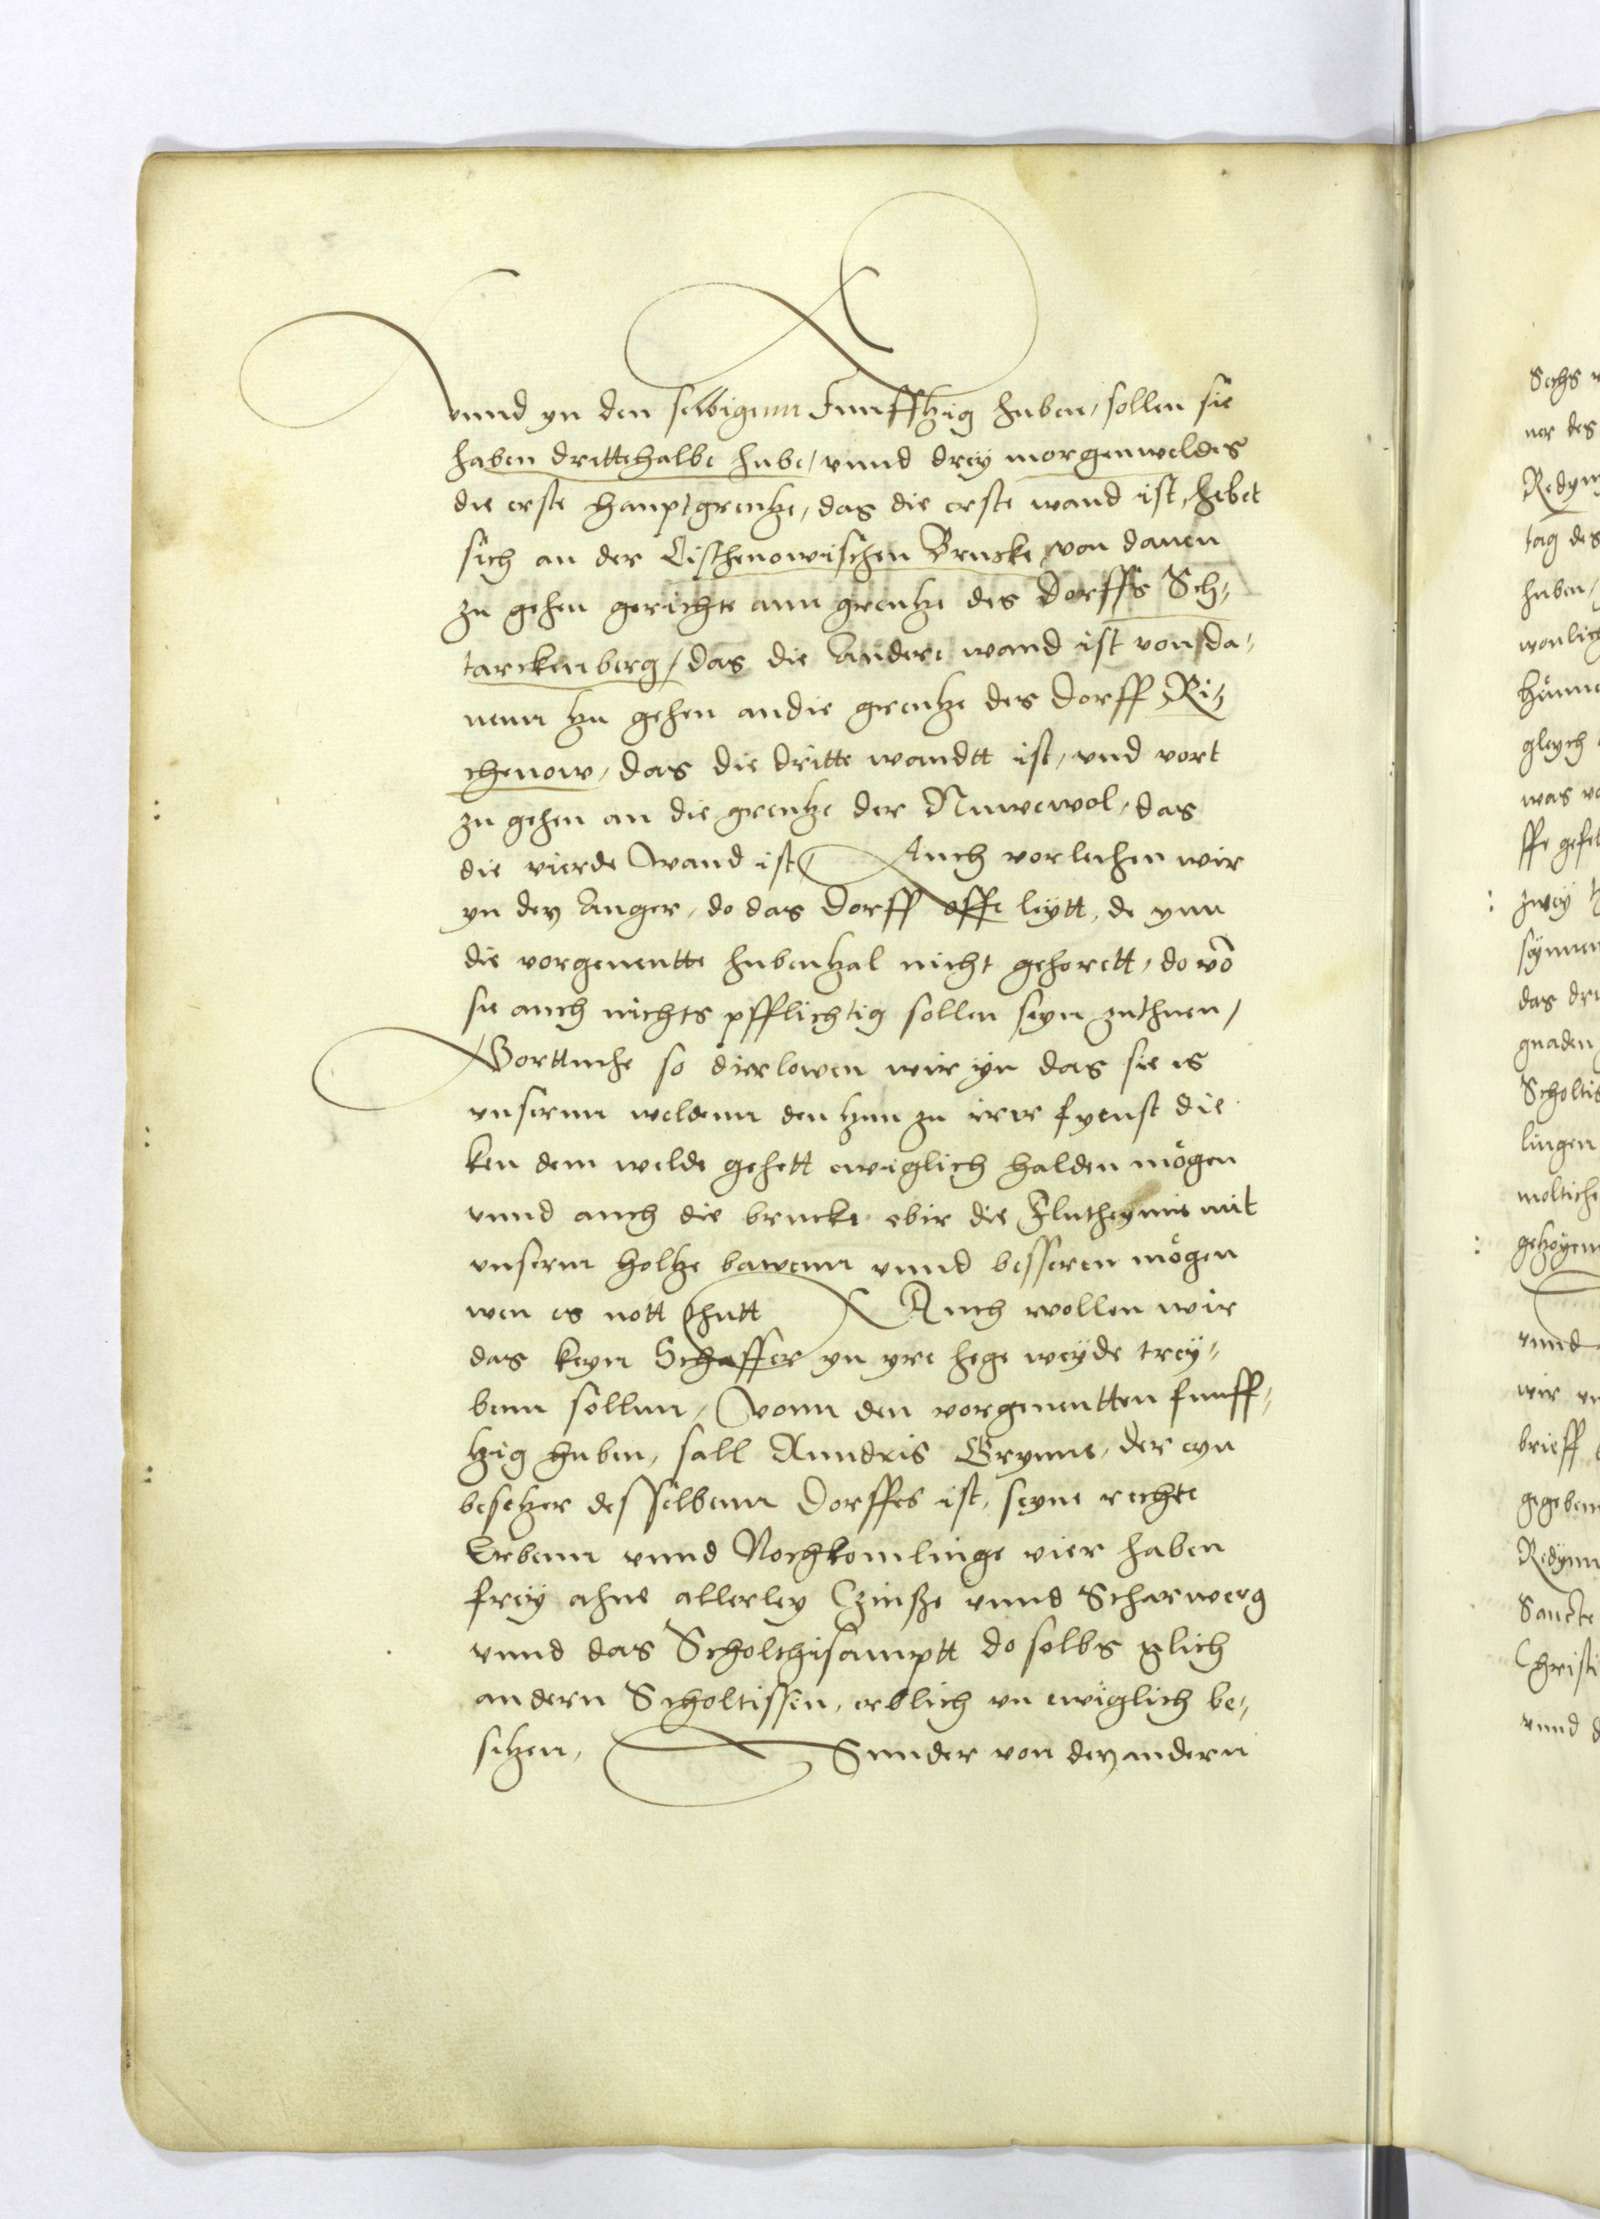 vnnd yn den selbigenn Funfftzig huben, sollen sie
haben drittehalbe hube, vnnd drey morgen weldes
die erste hauptgrentze, das die erste wand ist, hebet
sich an der Lischenowischen Brucke von danen
zu gehen gerichte ann grentze des Dorffs Sch⸗
tarckenberg, das die Andere wand ist von da⸗
nenn tzu gehen an die grentze des Dorff Ri⸗
chenow, das die dritte wandtt ist, vnd vort
zu gehen an die grentze der Nuwewol, das
die vierde Wand ist Auch vorleihen wir
yn den Anger, do das Dorff offe leytt, de ynn
die vorgenentte hubentzal nicht gehorett, do vō
sie auch nichts pfflichtig sollen seyn zuthuen,
Vorttmehe so dirlowen wir yn das sie is
vnserm weldenn den tzun zu irer
ken dem welde gehett ewiglich halden mögen
vnnd auch die brucke obir die mit
vnserm holtze bawenn vnnd besseren mögen
wen es nott thutt Auch wollen wir
das keyn Schaffer yn yre hege weyde trey⸗
benn sollenn, Vonn den vorgenentten funff⸗
tzig huben, sall Anndris Grynne, der eyn
besetzer desselbenn Dorffes ist, seyne rechte
Erbenn vnnd Nochkomlinge vier haben
frey ahne allerley Czinsze vnnd Scharwerg
vnnd das Scholthisamptt do selbs glich
andern Scholtissen, erblich vn ewiglich be⸗
sitzen, Sunder von den andern
Sechs
ner des
tag des
huben,
wonlich
gleych
was
zwey
das
gnaden
lingen
vnnd
wir
brieff
gegeben
Sancte
Christi
vnnd